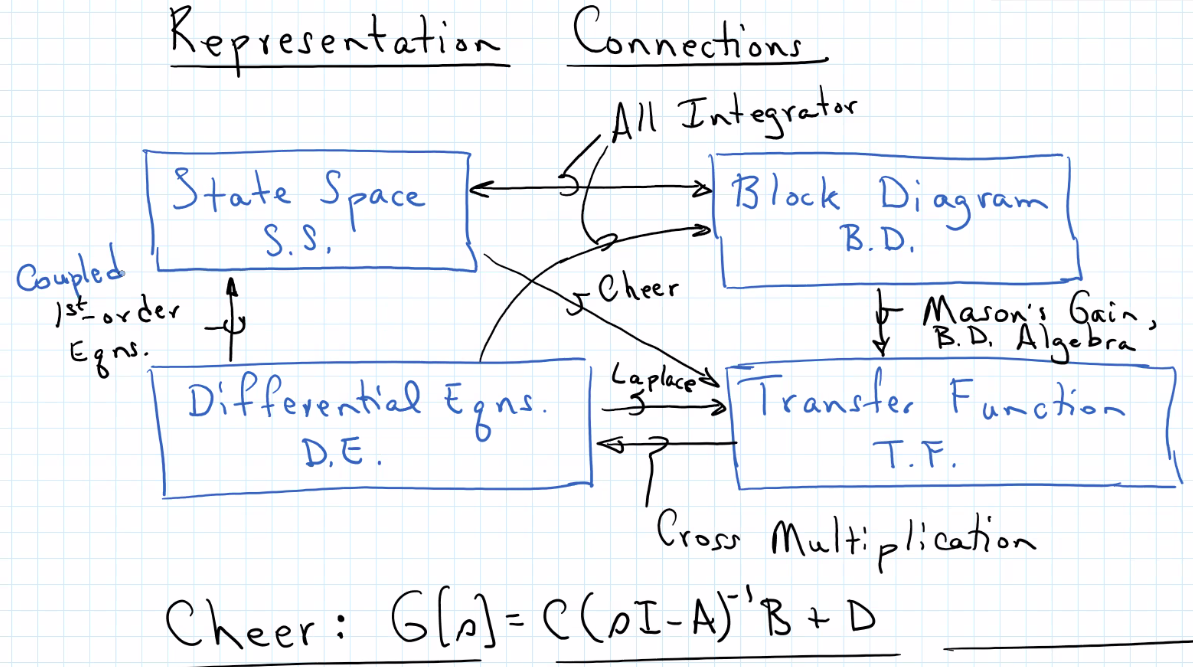 Representation Connections
All Integrator
State Space
S.S.
Block Diagram
B.D.
Coupled
1st-order
Eqns.
Cheer
Mason's Gain,
B.D. Algebra
Differential Eqns.
D.E.
Laplace
Transfer Function
T.F.
Cross Multiplication
Cheer: G[s] = C(sI-A)⁻¹B + D